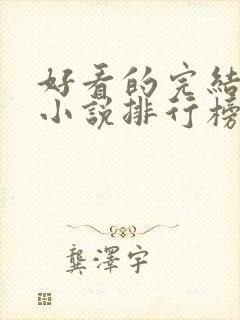 好看的完結
小説排行榜
龔澤宇